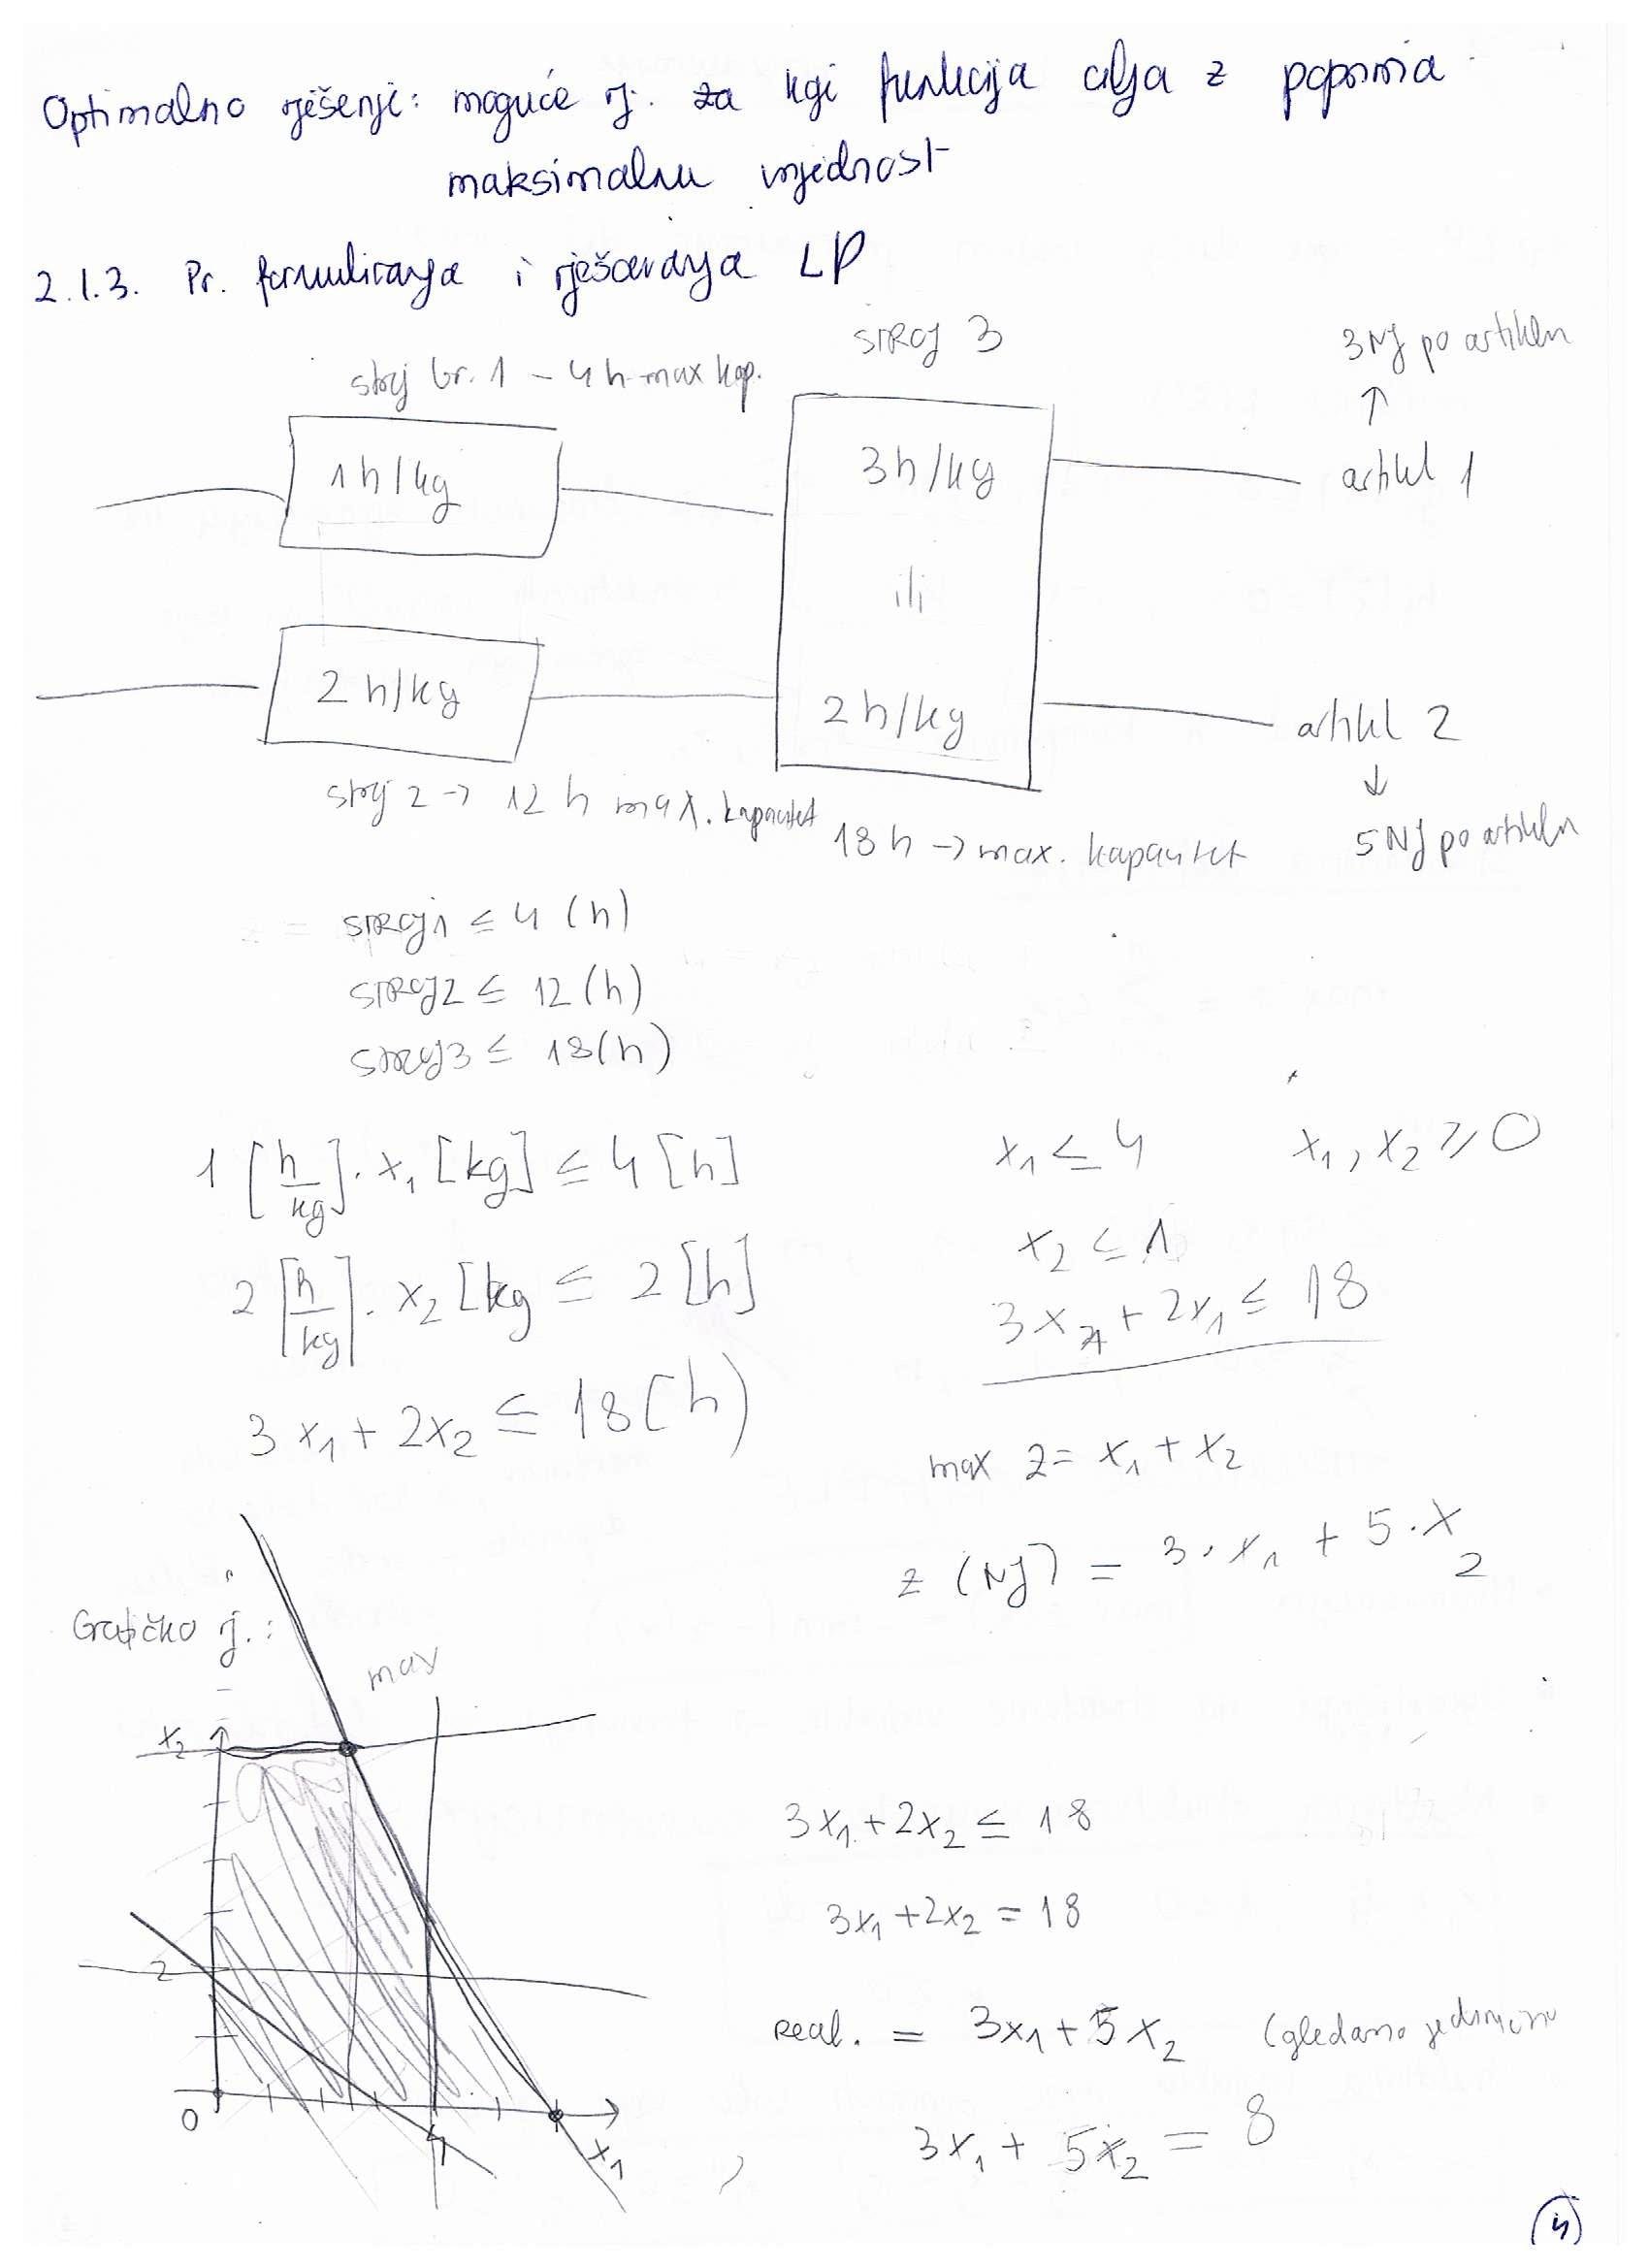 Optimalno rješenje: moguće rj. za koji funkcija cilja z poprima
maksimalnu vrijednost
2.1.3. Pr. formuliranja i rješavanja LP
STROJ 3
3 NJ po artiklu
↑
stroj br. 1 - 4 h max kap.
1h/kg
3h/kg
artikl 1
ili
2 h/kg
2h/kg
artikl 2
↓
stroj 2 → 12 h max. kapacitet
18 h → max. kapacitet
5 NJ po artiklu
STROJ1 ≤ 4 (h)
STROJ2 ≤ 12 (h)
STROJ3 ≤ 18(h)
1 [h/kg] · x₁ [kg] ≤ 4 [h]
x₁ ≤ 4
x₁, x₂ ≥ 0
2 [h/kg] · x₂ [kg ≤ 2 [h]
x₂ ≤ 1
3x₁ + 2x₁ ≤ 18
3 x₁ + 2x₂ ≤ 18 (h)
max z = x₁ + x₂
z (NJ) = 3 · x₁ + 5 · x₂
Grafičko rj.:
max
x₂
3x₁ + 2x₂ ≤ 18
3x₁ + 2x₂ = 18
2
Real. = 3x₁ + 5x₂ (gledamo
0
4
x₁
3x₁ + 5x₂ = 8
4